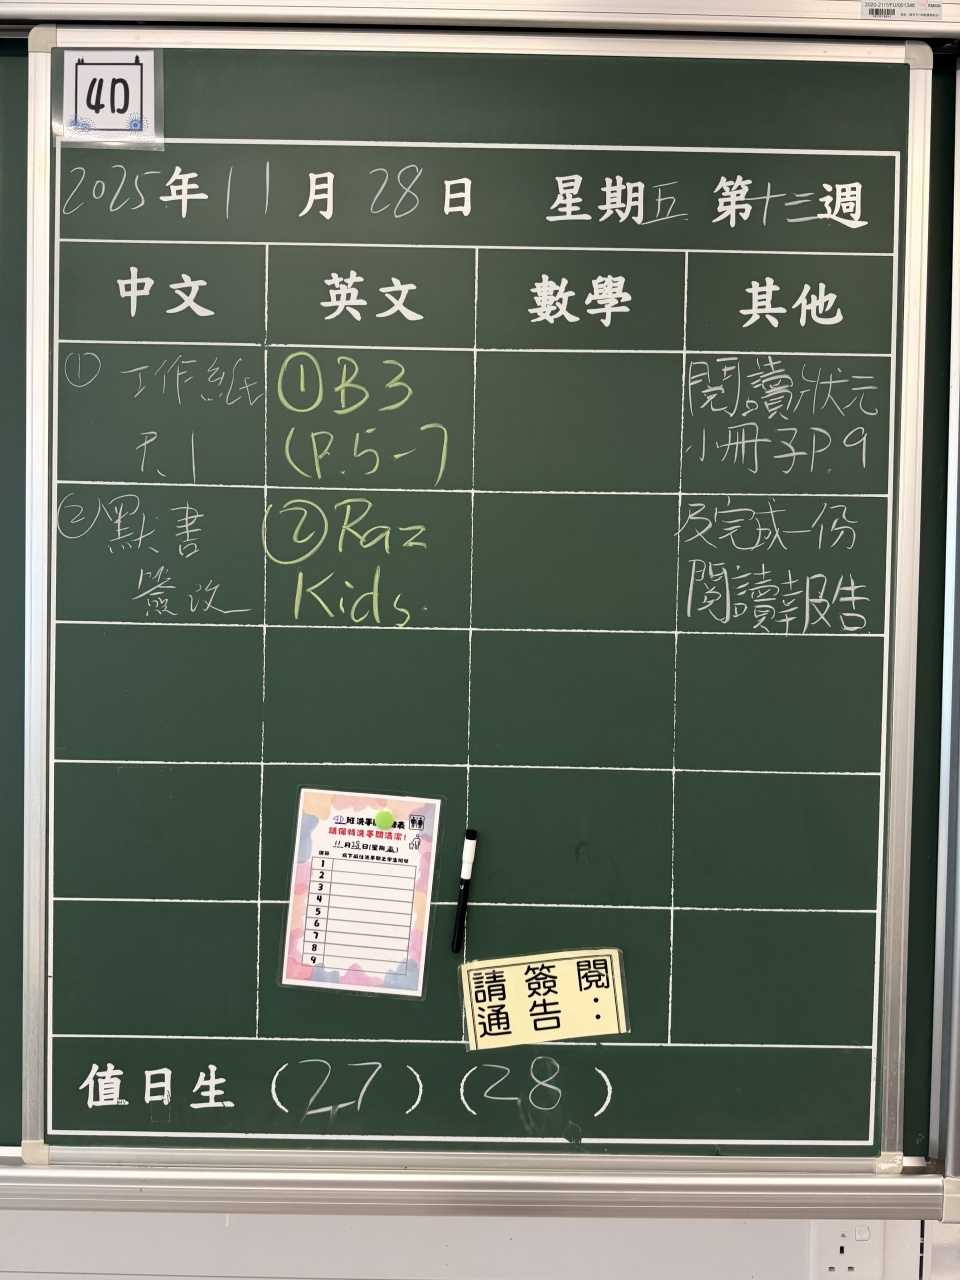 2020-21/1/FU/001346
4D
2025年11月28日 星期五 第十三週
中文 英文 數學 其他
① 工作紙
P.1
② 默書
簽改
①B3
(P.5-7
②Raz
Kids.
閱讀狀元
小冊子P.9
及完成一份
閱讀報告
4D班洗手間
請保持洗手間清潔!
11月28日(星期五)
1
2
3
4
5
6
7
8
9
請簽閱
通告:
值日生 (27) (28)